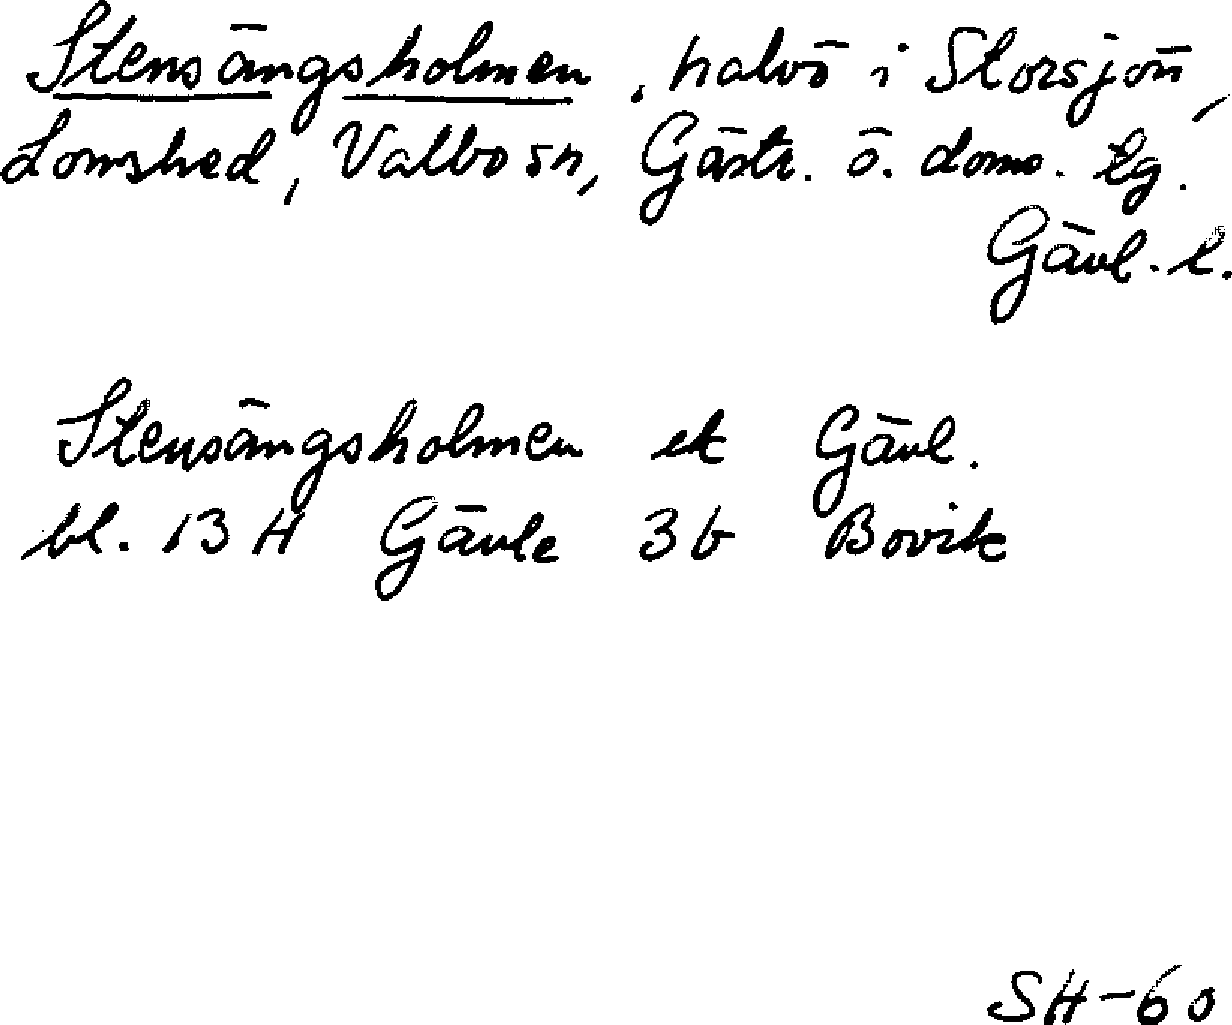 Stensängsholmen, halvö i Storsjön,
Lomshed, Valbo sn, Gästr. ö. doms. tg.
Gävl. l.
Stensängsholmen ek Gävl.
bl. 13 H Gävle 3 b Bovik
SH-60